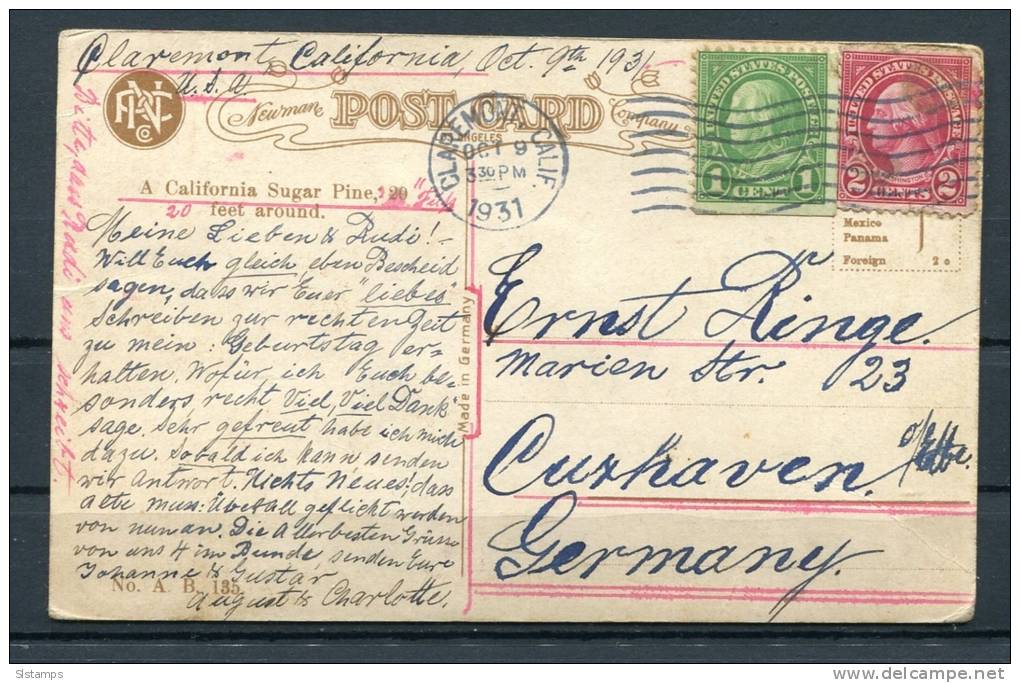 Claremont, California, Oct. 9th 1931
U.S.A.
ANC
Co
Newman POST CARD Company
CLAREMONT, CALIF.
ANGELES
OCT 9
330 PM
1931
UNITED STATES POSTAGE
1 CENT 1
UNITED STATES POSTAGE
WASHINGTON
2 CENTS 2
A California Sugar Pine, 20
20 feet around.
Mexico
Panama
Foreign 2c
Bitte, aus Rudi uns schreibt.
Meine Lieben & Rudi! –
Will Euch gleich, eben Bescheid
sagen, dass wir Euer "liebes"
Schreiben zur rechten Zeit
zu mein Geburtstag er=
halten. Wofür ich Euch be=
sonders recht Viel, Viel Dank"
sage. Sehr gefreut habe ich mich
dazu. Sobald ich kann senden
wir Antwort. Nichts Neues! dass
alte muss Überall geflickt werden
von nun an. Die Allerbesten Grüsse
von uns 4 im Bunde, senden Eure
Johanne & Gustav
August & Charlotte.
No. A. B. 135
Made in Germany
Ernst Ringe.
Marien Str. 23
Cuxhaven. a/Elbe.
Germany.
Slstamps
delcampe.net